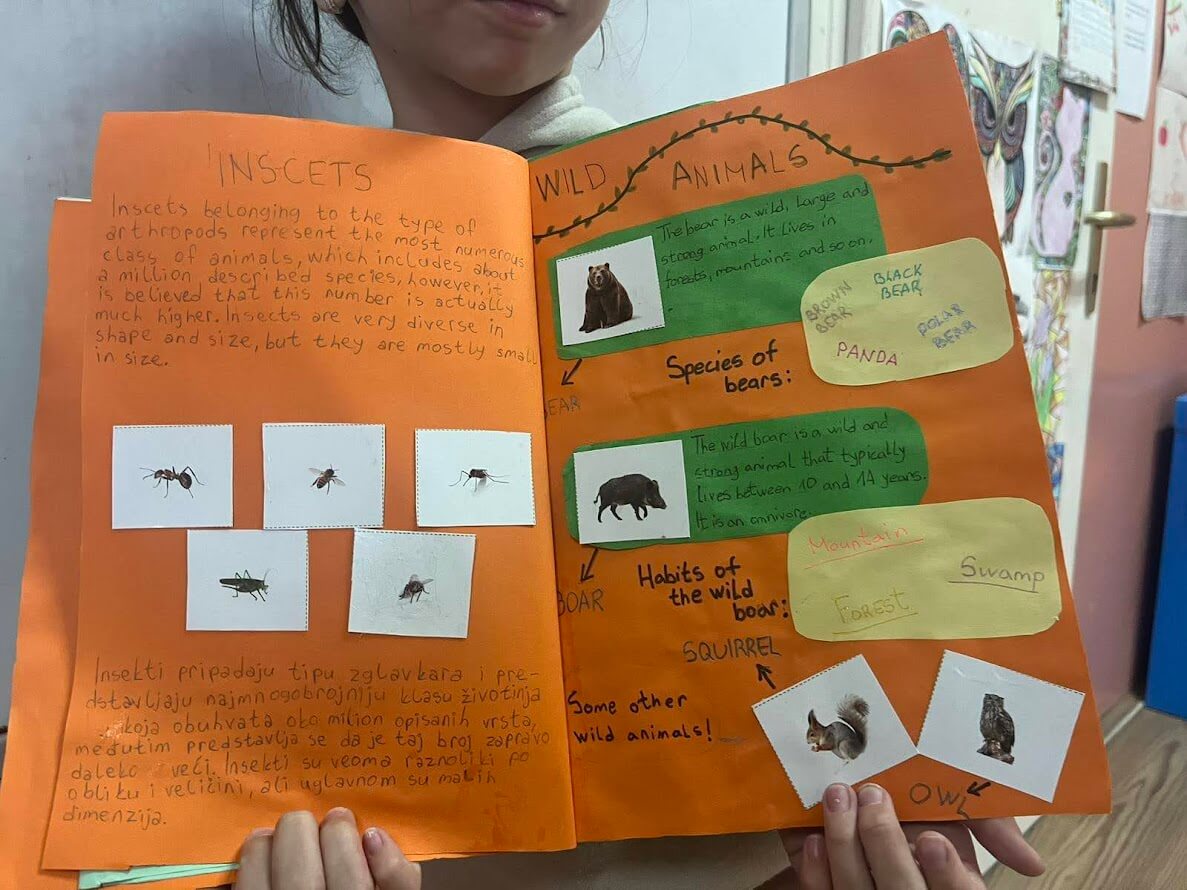 INSCETS
Inscets belonging to the type of
arthropods represent the most numerous
class of animals, which includes about
a million described species, however, it
is believed that this number is actually
much higher. Insects are very diverse in
shape and size, but they are mostly small
in size.
Insekti pripadaju tipu zglavkara i pre-
dstavljaju najmnogobrojniju klasu životinja
koja obuhvata oko milion opisanih vrsta,
međutim predstavlja se da je taj broj zapravo
daleko veći. Insekti su veoma raznoliki po
obliku i veličini, ali uglavnom su malih
dimenzija.
WILD ANIMALS
The bear is a wild, large and
strong animal. It lives in
forests, mountains and so on.
BEAR
Species of
bears:
BROWN
BEAR
BLACK
BEAR
POLAR
BEAR
PANDA
The wild boar is a wild and
strong animal that typically
lives between 10 and 14 years.
It is an omnivore.
BOAR
Habits of
the wild
boar:
Mountain
Swamp
FOREST
SQUIRREL
Some other
wild animals!
OWL